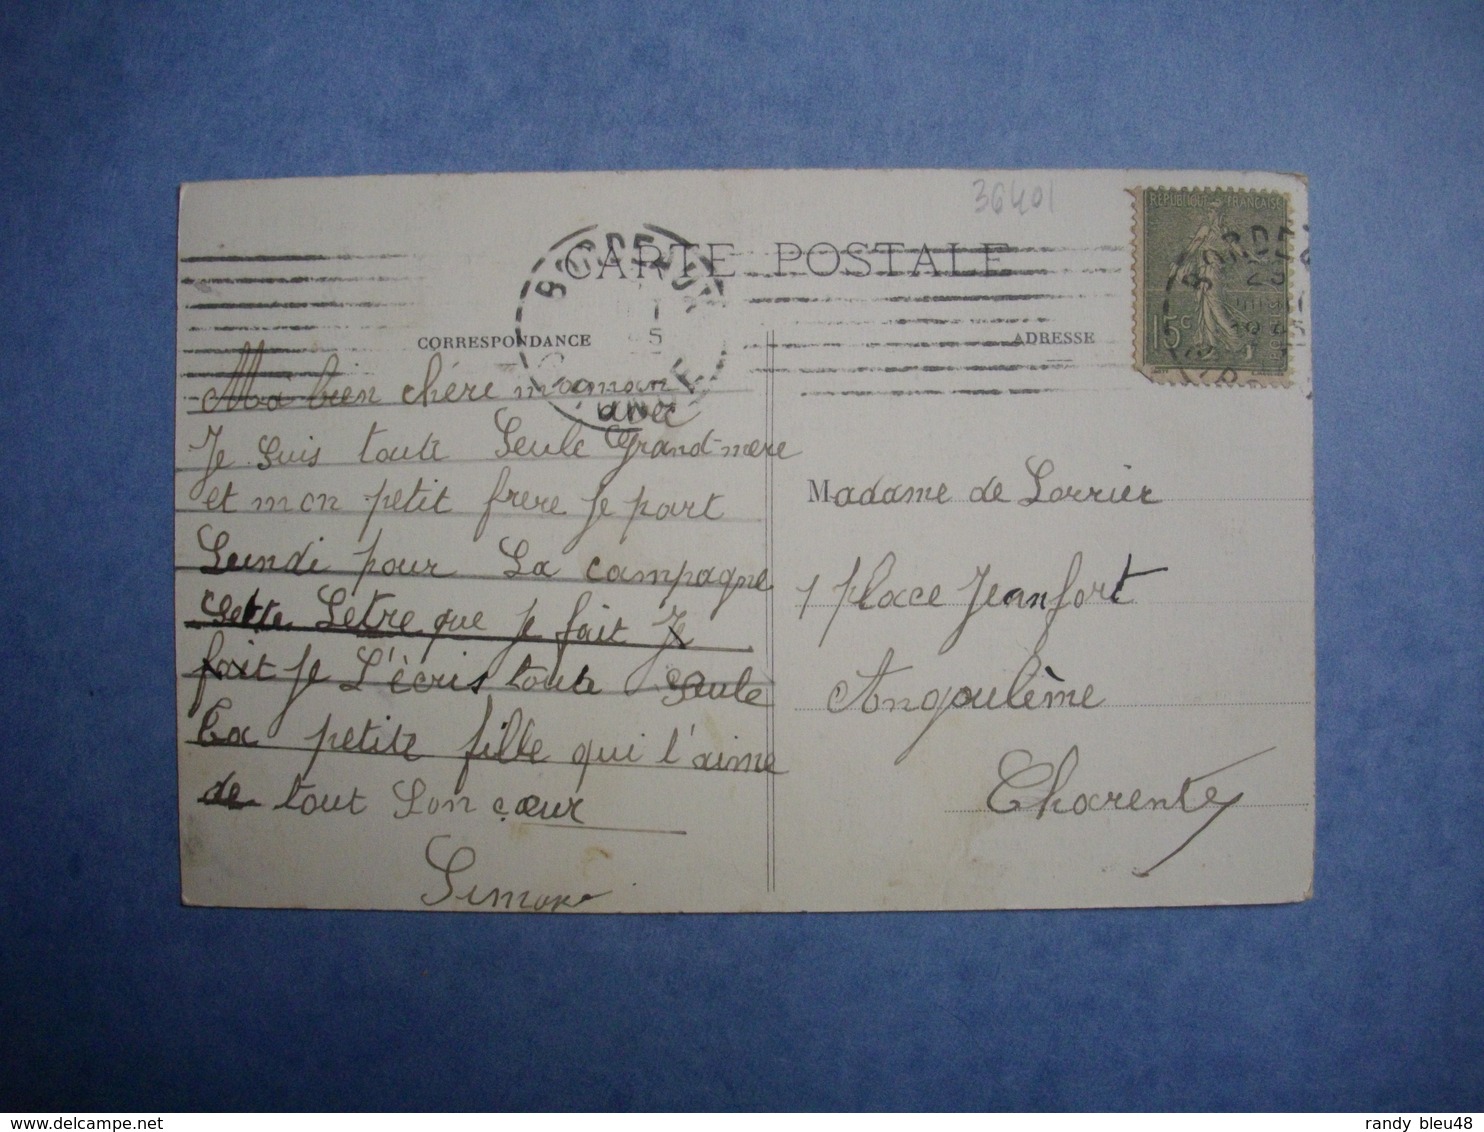 36401
CARTE POSTALE
BORDEAUX
RÉPUBLIQUE FRANÇAISE
15c
BORDEAUX
CORRESPONDANCE
ADRESSE
Ma bien chére maman
avec
Je suis toute Seule Grand-mere
et mon petit frere Je part
Lundi pour La campagne
cette Letre que je fait Je
fait Je L'ècris toute seule
Ta petite fille qui t'aime
de tout Son cœur
Simone
Madame de Lorrier
1 place Jeanfort
Angoulême
Charente
randy bleu48